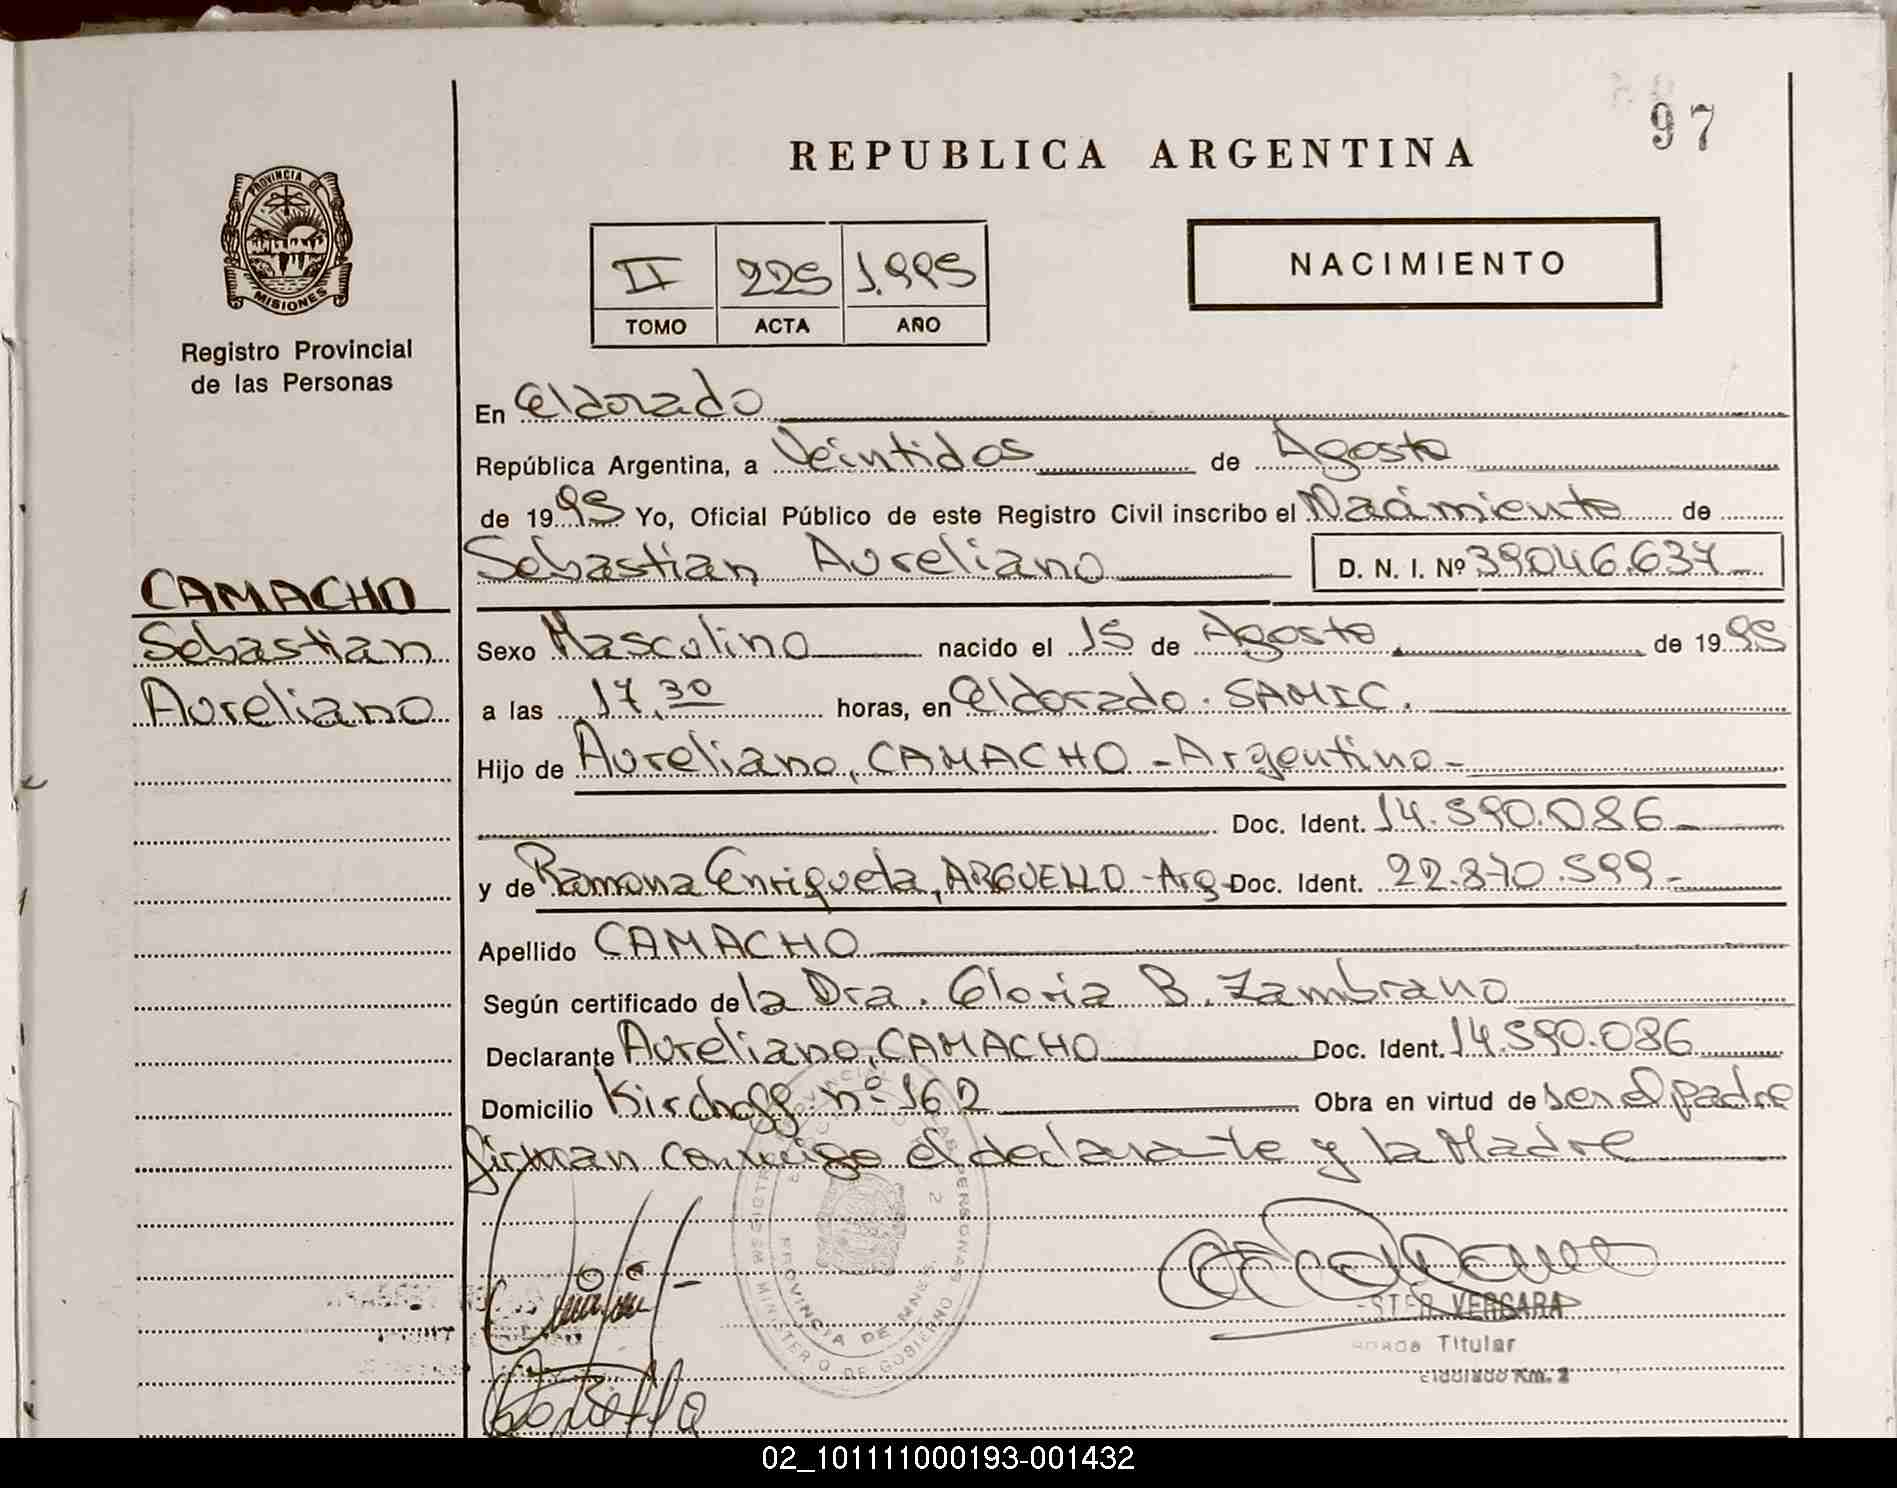 97
REPUBLICA ARGENTINA
PROVINCIA DE
MISIONES
Registro Provincial
de las Personas
II 225 1.995
TOMO ACTA AÑO
NACIMIENTO
En Eldorado
República Argentina, a Veintidos de Agosto
de 1995 Yo, Oficial Público de este Registro Civil inscribo el Nacimiento de
Sebastian Aureliano D. N. I. Nº 39.046.637
CAMACHO
Sebastian
Aureliano
Sexo Masculino nacido el 15 de Agosto de 1995
a las 17,30 horas, en Eldorado. SAMIC.
Hijo de Aureliano, CAMACHO - Argentino -
Doc. Ident. 14.590.086
y de Ramona Enriqueta, ARGUELLO - Arg - Doc. Ident. 22.870.599 -
Apellido CAMACHO
Según certificado de la Dra. Gloria B. Zambrano
Declarante Aureliano, CAMACHO Doc. Ident. 14.590.086
Domicilio Kirchoff nº 162 Obra en virtud de ser el padre
firman conmigo el declarante y la Madre
PROVINCIA DE MNES.
MINISTERIO DE GOBIERNO
VERGARA
Titular
Km. 2
02_101111000193-001432